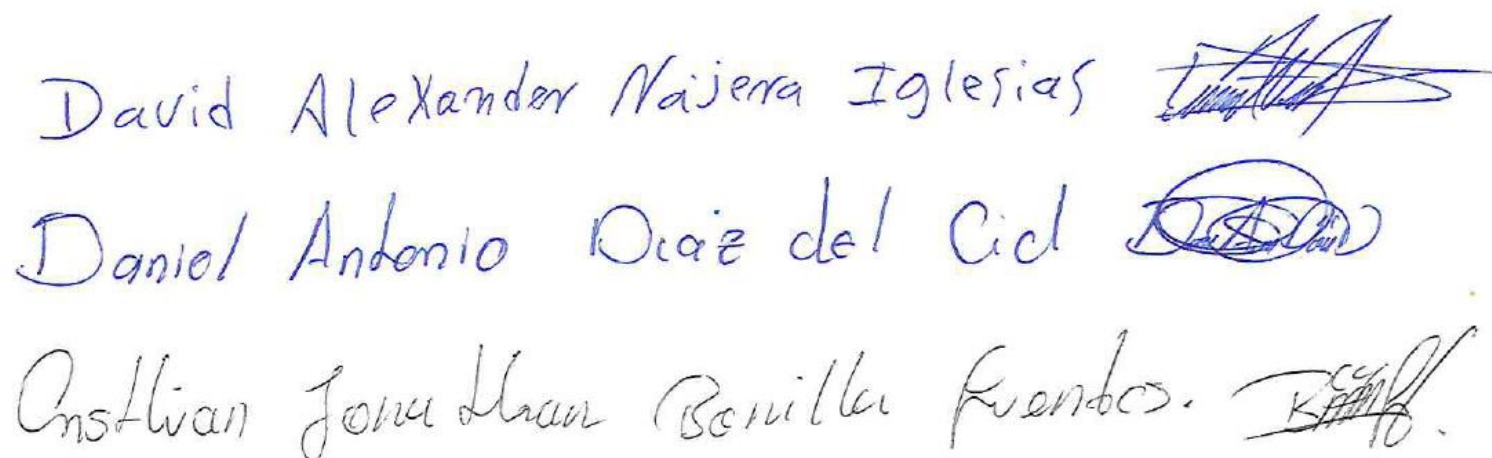 David Alexander Najera Iglesias
Daniel Antonio Diaz del Cid
Cristhian Jonathan Bonilla Fuentes.